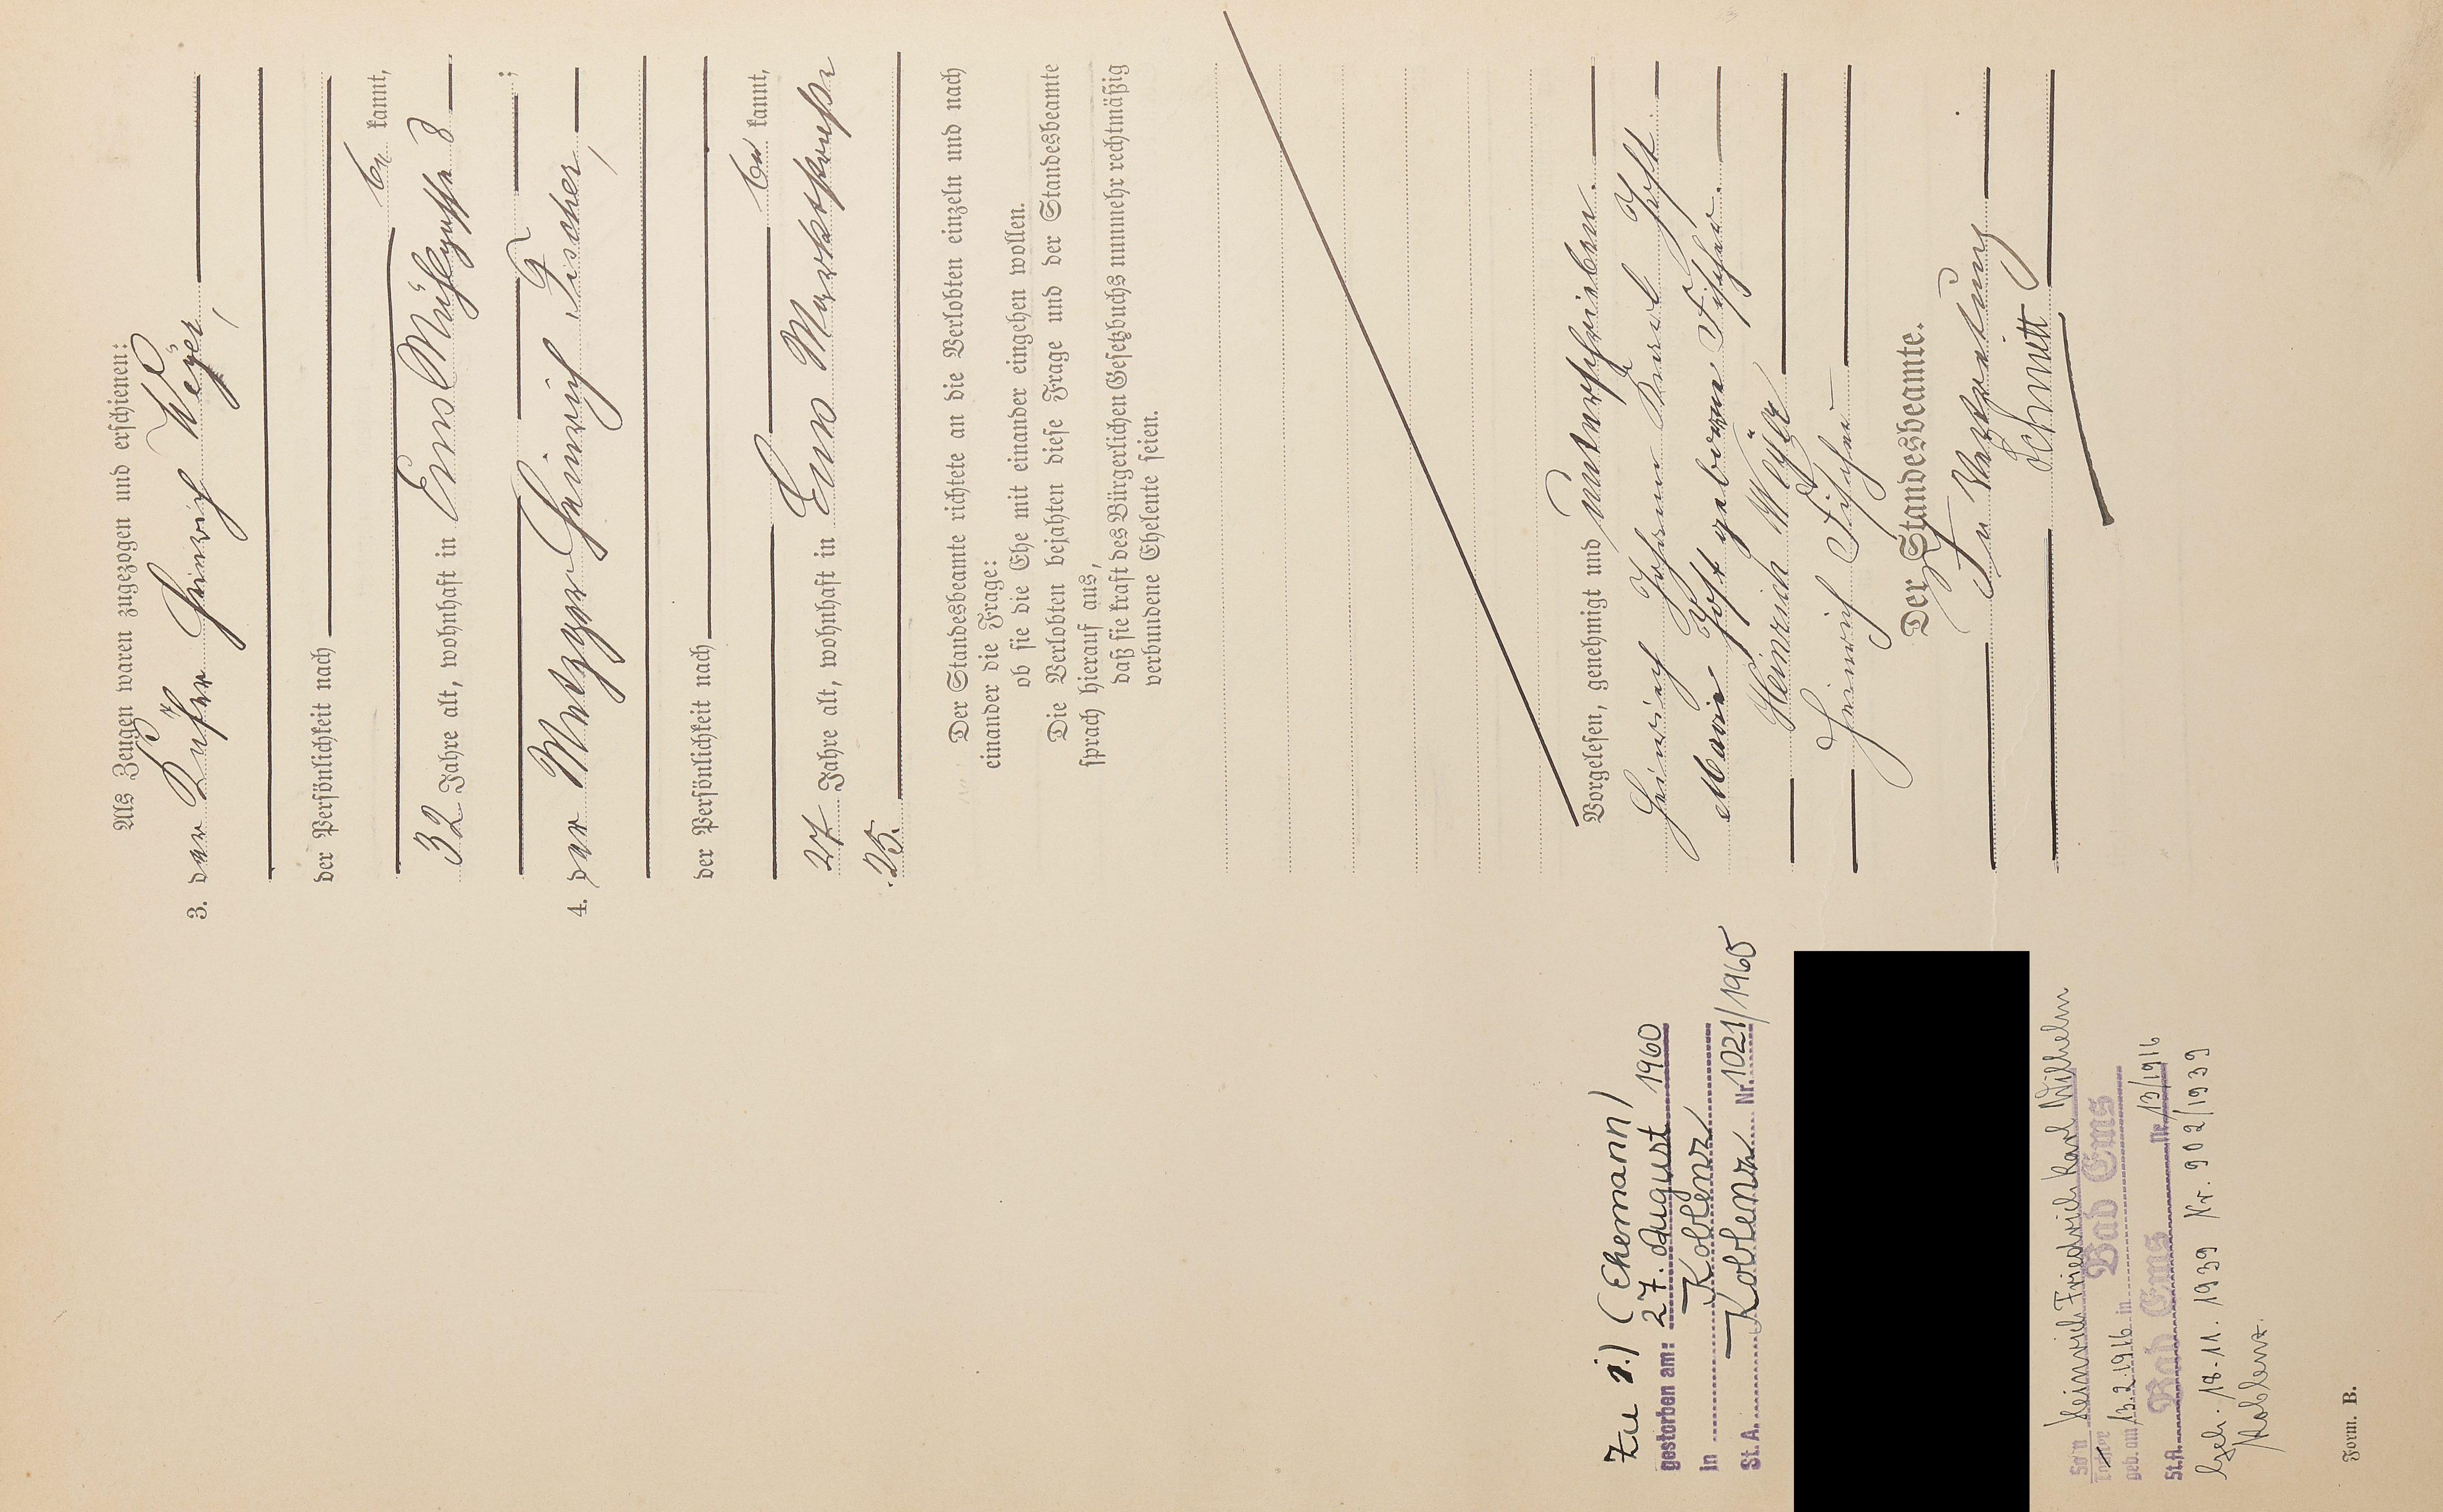 Als Zeugen waren zugezogen und erschienen:
3. der Küfer Heinrich Weyer,
der Persönlichkeit nach
be kannt,
32 Jahre alt, wohnhaft in Ems Mühlgasse 8
;
4. der Metzger Heinrich Fischer,
der Persönlichkeit nach
be kannt,
27 Jahre alt, wohnhaft in Ems Marktstraße
25.
Der Standesbeamte richtete an die Verlobten einzeln und nach
einander die Frage:
ob sie die Ehe mit einander eingehen wollen.
Die Verlobten bejahten diese Frage und der Standesbeamte
sprach hierauf aus,
daß sie kraft des Bürgerlichen Gesetzbuchs nunmehr rechtmäßig
verbundene Eheleute seien.
Vorgelesen, genehmigt und unterschrieben.
Heinrich Johann Karl Jost.
Maria Jost geborene Fischer.
Heinrich Weyer
Heinrich Fischer
Der Standesbeamte.
In Vertretung
Schmitt
Zu 1.) (Ehemann)
gestorben am: 27. August 1960
in Koblenz
St. A. Koblenz Nr. 1021/1960
Sohn Heinrich Friedrich Karl Wilhelm
Tochter
geb. am 13.2.1916 in Bad Ems
St.A. Bad Ems Nr. 13/1916
Gesch. 18.11.1939 Nr. 902/1939
Koblenz.
Form. B.